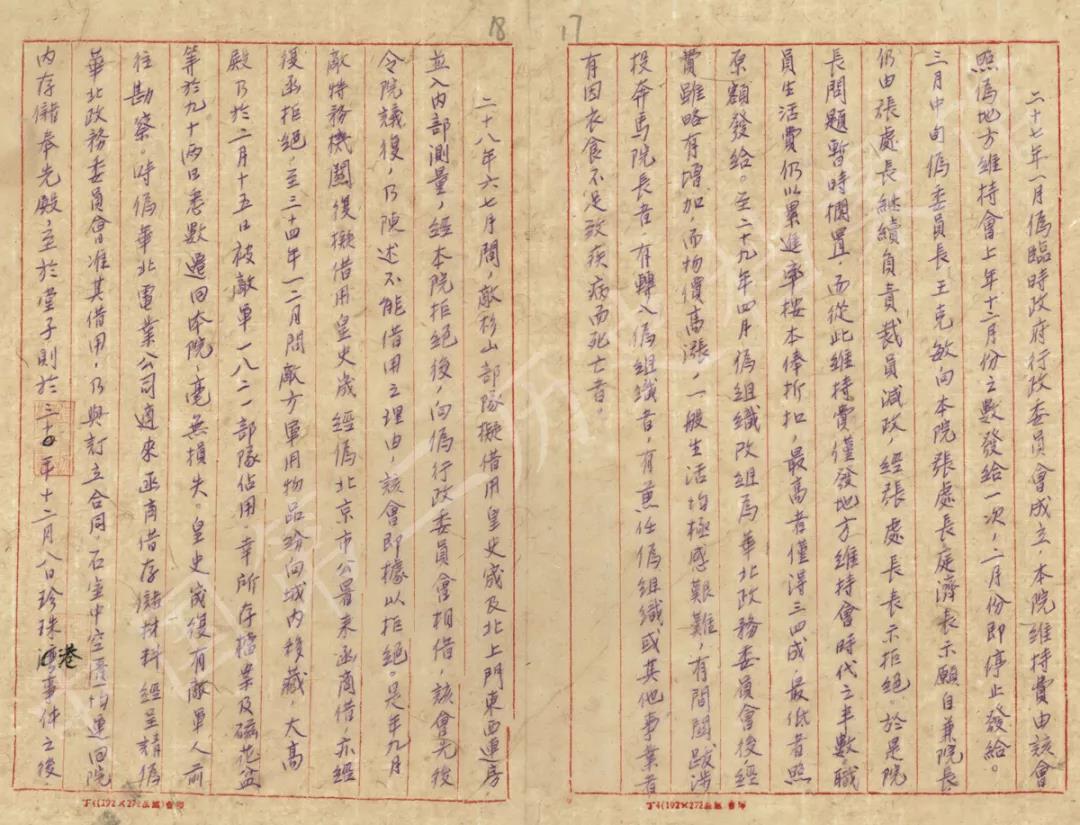 17
二十七年一月偽臨時政府行政委員會成立，本院維持費由該會
照偽地方維持會上年十二月份之數發給一次，二月份即停止發給。
三月中旬偽委員長王克敏向本院張處長庭濟長示願自兼院長
仍由張處長繼續負責裁員減政，經張處長長示拒絕。於是院
長問題暫時擱置，而從此維持費僅發地方維持會時代之半數。職
員生活費仍以累進率按本俸折扣，最高者僅得三四成，最低者照
原額發給。至二十九年四月偽組織改組為華北政務委員會後經
費雖略有增加，而物價高漲，一般生活均極感艱難，有間關跋涉
投奔馬院長者，有轉入偽組織者，有兼任偽組織或其他事業者
有因衣食不足致疾病而死亡者。
18
二十八年六七月間，敵杉山部隊擬借用皇史宬及北上門東西連房
並入內部測量，經本院拒絕後，向偽行政委員會相借，該會先後
令院議復，乃陳述不能借用之理由，該會即據以拒絕。是年九月
敵特務機關復擬借用皇史宬經偽北京市公署來函商借，亦經
復函拒絕，至三十四年一二月間敵方軍用物品紛向城內移藏，大高
殿乃於二月十五日被敵軍一八二一部隊佔用，幸所存檔案及磁花盆
等於九十兩日悉數遷回本院，毫無損失。皇史宬復有敵軍人前
往勘察。時偽華北電業公司適來函商借存儲材料經呈請偽
華北政務委員會准其借用，乃與訂立合同，石室中空匱均運回院
內存儲奉先殿，至於堂子則於三十年十二月八日珍珠港事件之後，
丁4(192×272公厘)會印
丁4(192×272公厘)會印